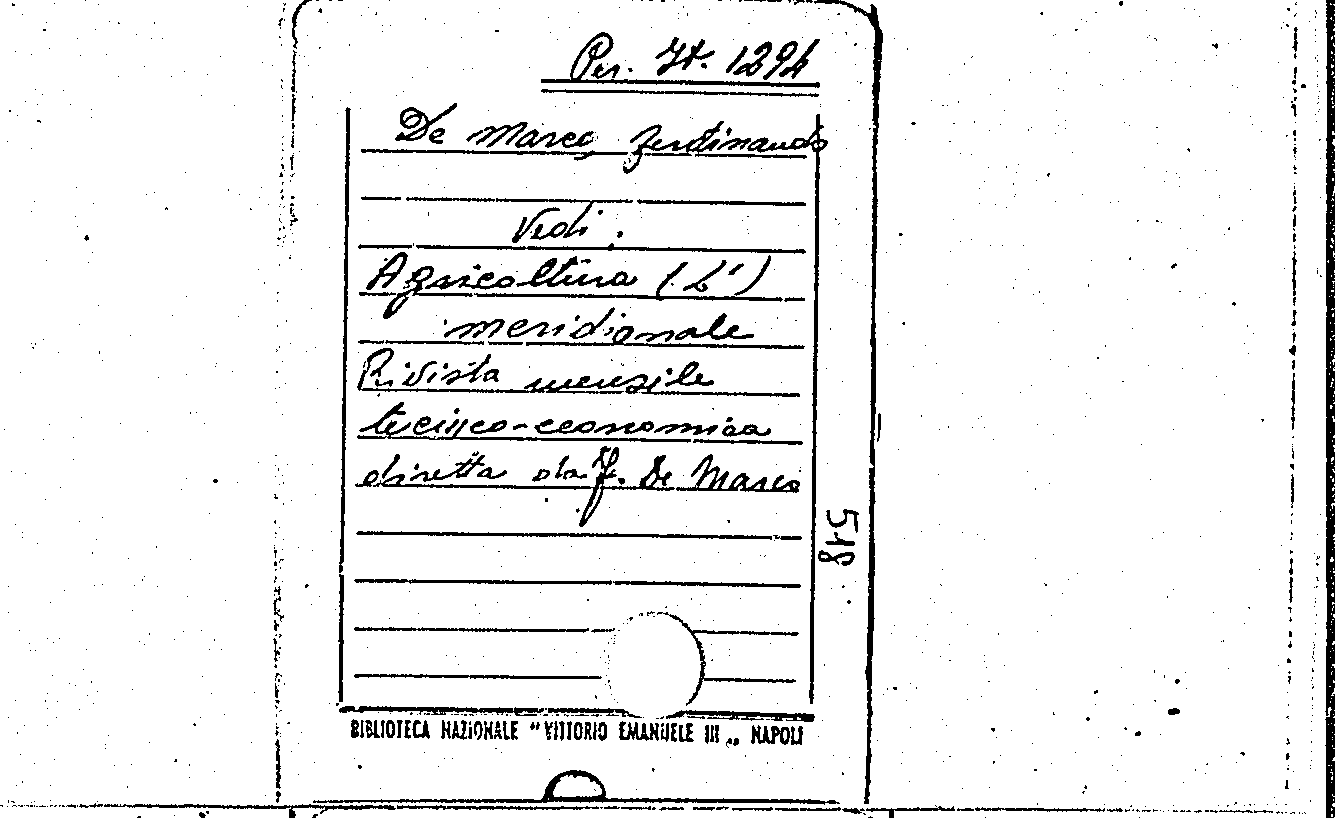 Per. It. 1294
De Marco, Ferdinando
Vedi:
Agricoltura (L')
meridionale
Rivista mensile
tecnico-economica
diretta da F. De Marco
518
BIBLIOTECA NAZIONALE "VITTORIO EMANUELE III„ NAPOLI